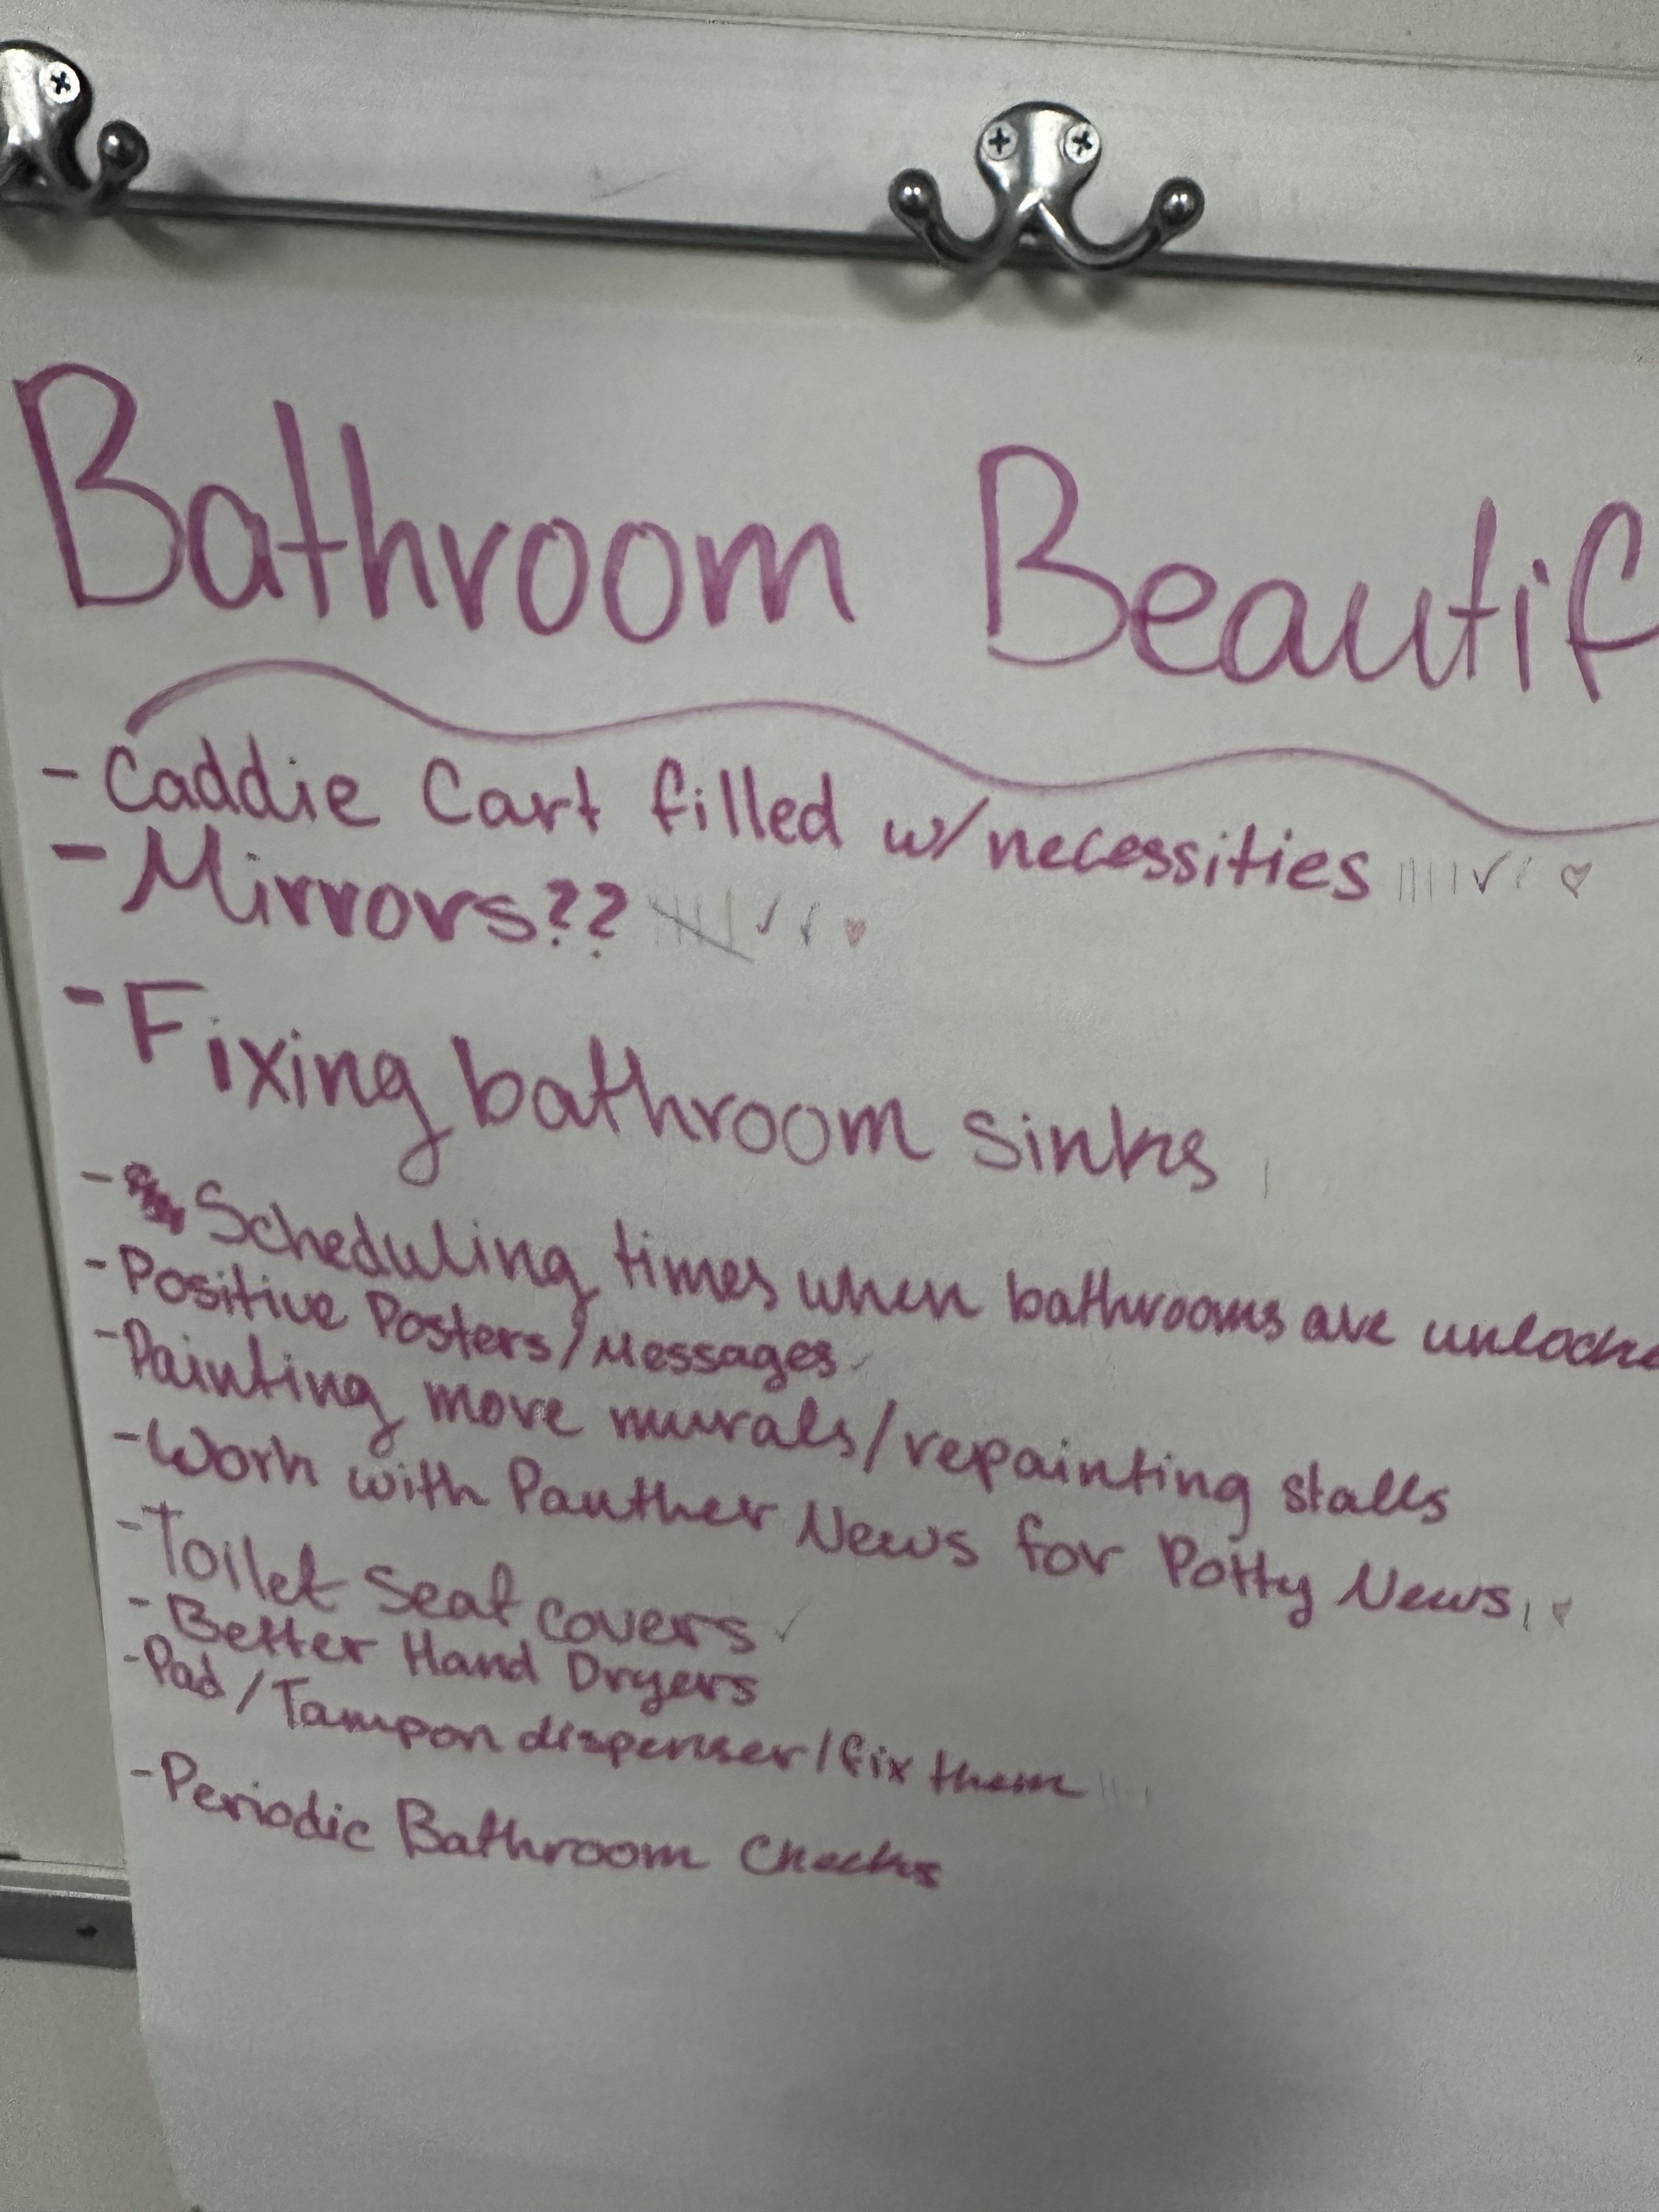 Bathroom Beautif
- Caddie Cart filled w/ necessities
- Mirrors??
- Fixing bathroom sinks
- Scheduling times when bathrooms are unlocke
- Positive Posters/Messages
- Painting more murals/repainting stalls
- Work with Panther News for Potty News
- Toilet Seat covers
- Better Hand Dryers
- Pad/Tampon dispenser/fix them
- Periodic Bathroom Checks